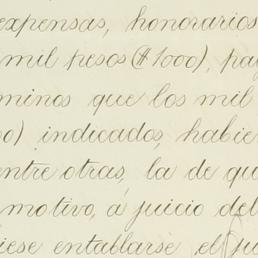 expensas, honorarios
mil pesos ($1000), pa
minos que los mil
00) indicados, habie
entre otras, la de qu
motivo, á juicio del
iese entablarse el ju